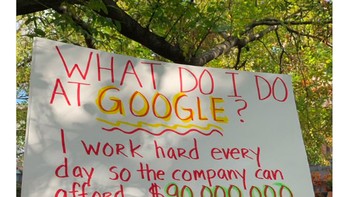 WHAT DO I DO
AT GOOGLE?
I WORK HARD EVERY
DAY SO THE COMPANY CAN
AFFORD $90,000,000